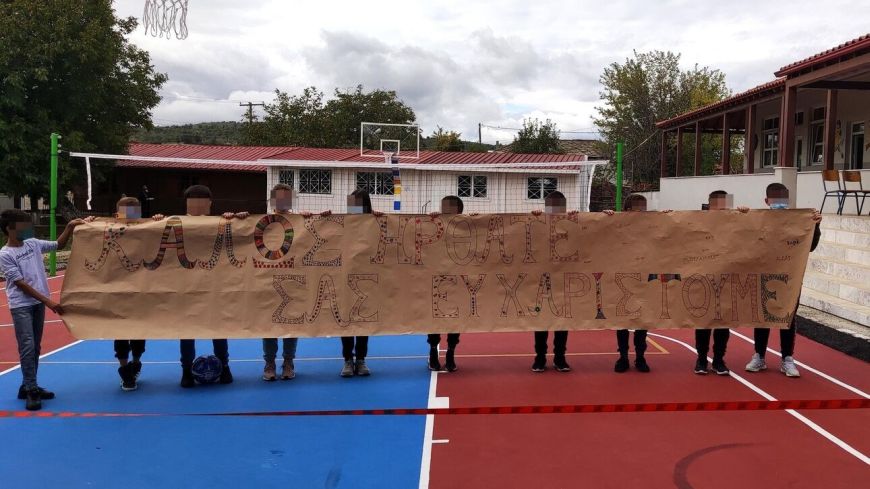 ΚΑΛΩΣ ΗΡΘΑΤΕ
ΣΑΣ ΕΥΧΑΡΙΣΤΟΥΜΕ